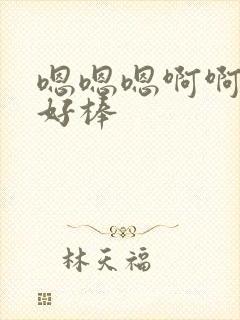 嗯嗯嗯啊啊
好棒
林天福